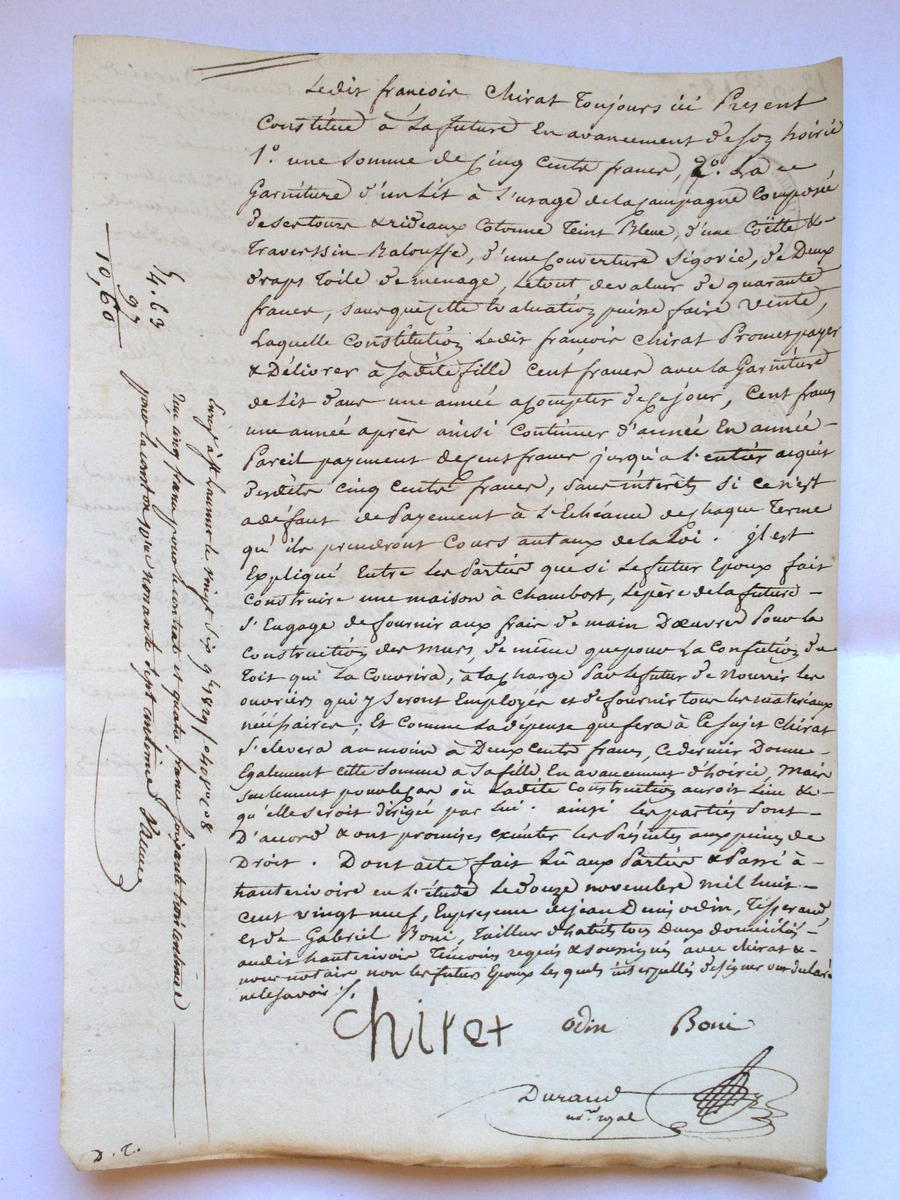 Ledit françois Chirat Toujours ici Present
Constitue à La future En avancement de son hoirie
1.° une Somme de Cinq Cents francs, 2.° La
Garniture d'un Lit à L'usage de la Campagne Composée
de ses tours & rideaux Cotonne Teint Bleue, d'une Coëtte &
Traverssin Balouffe, d'une Couverture Sigovie, de Deux
draps Toile de menage, Le tout de valeur de quarante
francs, sans que Cette Evaluation puisse faire Vente,
Laquelle Constitution Ledit françois Chirat Promet payer
& Délivrer à Sadite fille Cent francs avec la Garniture
de Lit dans une année à Compter de Ce jour, Cent francs
une année après ainsi Continuer d'année En année
Pareil payement de Cent francs jusqu'a L'entier acquit
desdits Cinq Cents francs, Sans intérêts Si Ce n'est
a défaut de Payement à L'Echéance de Chaque Terme
qu'ils prendront Cours au taux de la Loi. jl est
Expliqué Entre Les Parties que si Le futur Epoux fait
Construire une maison à Chambort, Le père de la future
S'Engage de fournir aux frais de main D'oeuvre Pour la
Construction des murs de même que pour La Confection du
Toit qui La Couvrira, à la Charge Par Le futur de Nourrir Les
ouvriers qui y Seront Employés et de fournir tous Les matériaux
nécessaires; Et Comme La dépense que fera à Ce Sujet Chirat
S'elevera au moin à Deux Cents francs, Ce dernier Donne
Egalement Cette Somme à Sa fille En avancement d'hoirie, Mais
Seulement pour le Cas où Ladite Construction auroit Lieu &
qu'elle Seroit dirigée par Lui. ainsi Les parties Sont
D'accord & ont promises exécuter Les Présentes aux peines de
Droit. Dont acte fait Lû aux Parties & Passé à
hauterivoire en L'étude Le Douze novembre mil huit
Cent vingt neuf, En présence de jean Denis odin, Tisserand,
Et de Gabriel Boni, Tailleur d'habits Tous Deux domiciliés
audit hauterivoir Témoins requis & Soussignés avec Chirat &
nous notaire non Les futurs Epoux Les quels interpellés de signer ont declaré
ne le Savoir ./.
Chirat odin Boni
Durand
not.re royal
D. T.
5
4. 63
97
10, 60
Enreg.é à St Laurent le vingt Six 9bre 1829
Reçu cinq francs pour le contrat et quatre francs soixante trois centimes
pour la donation 10me nonante Sept centimes